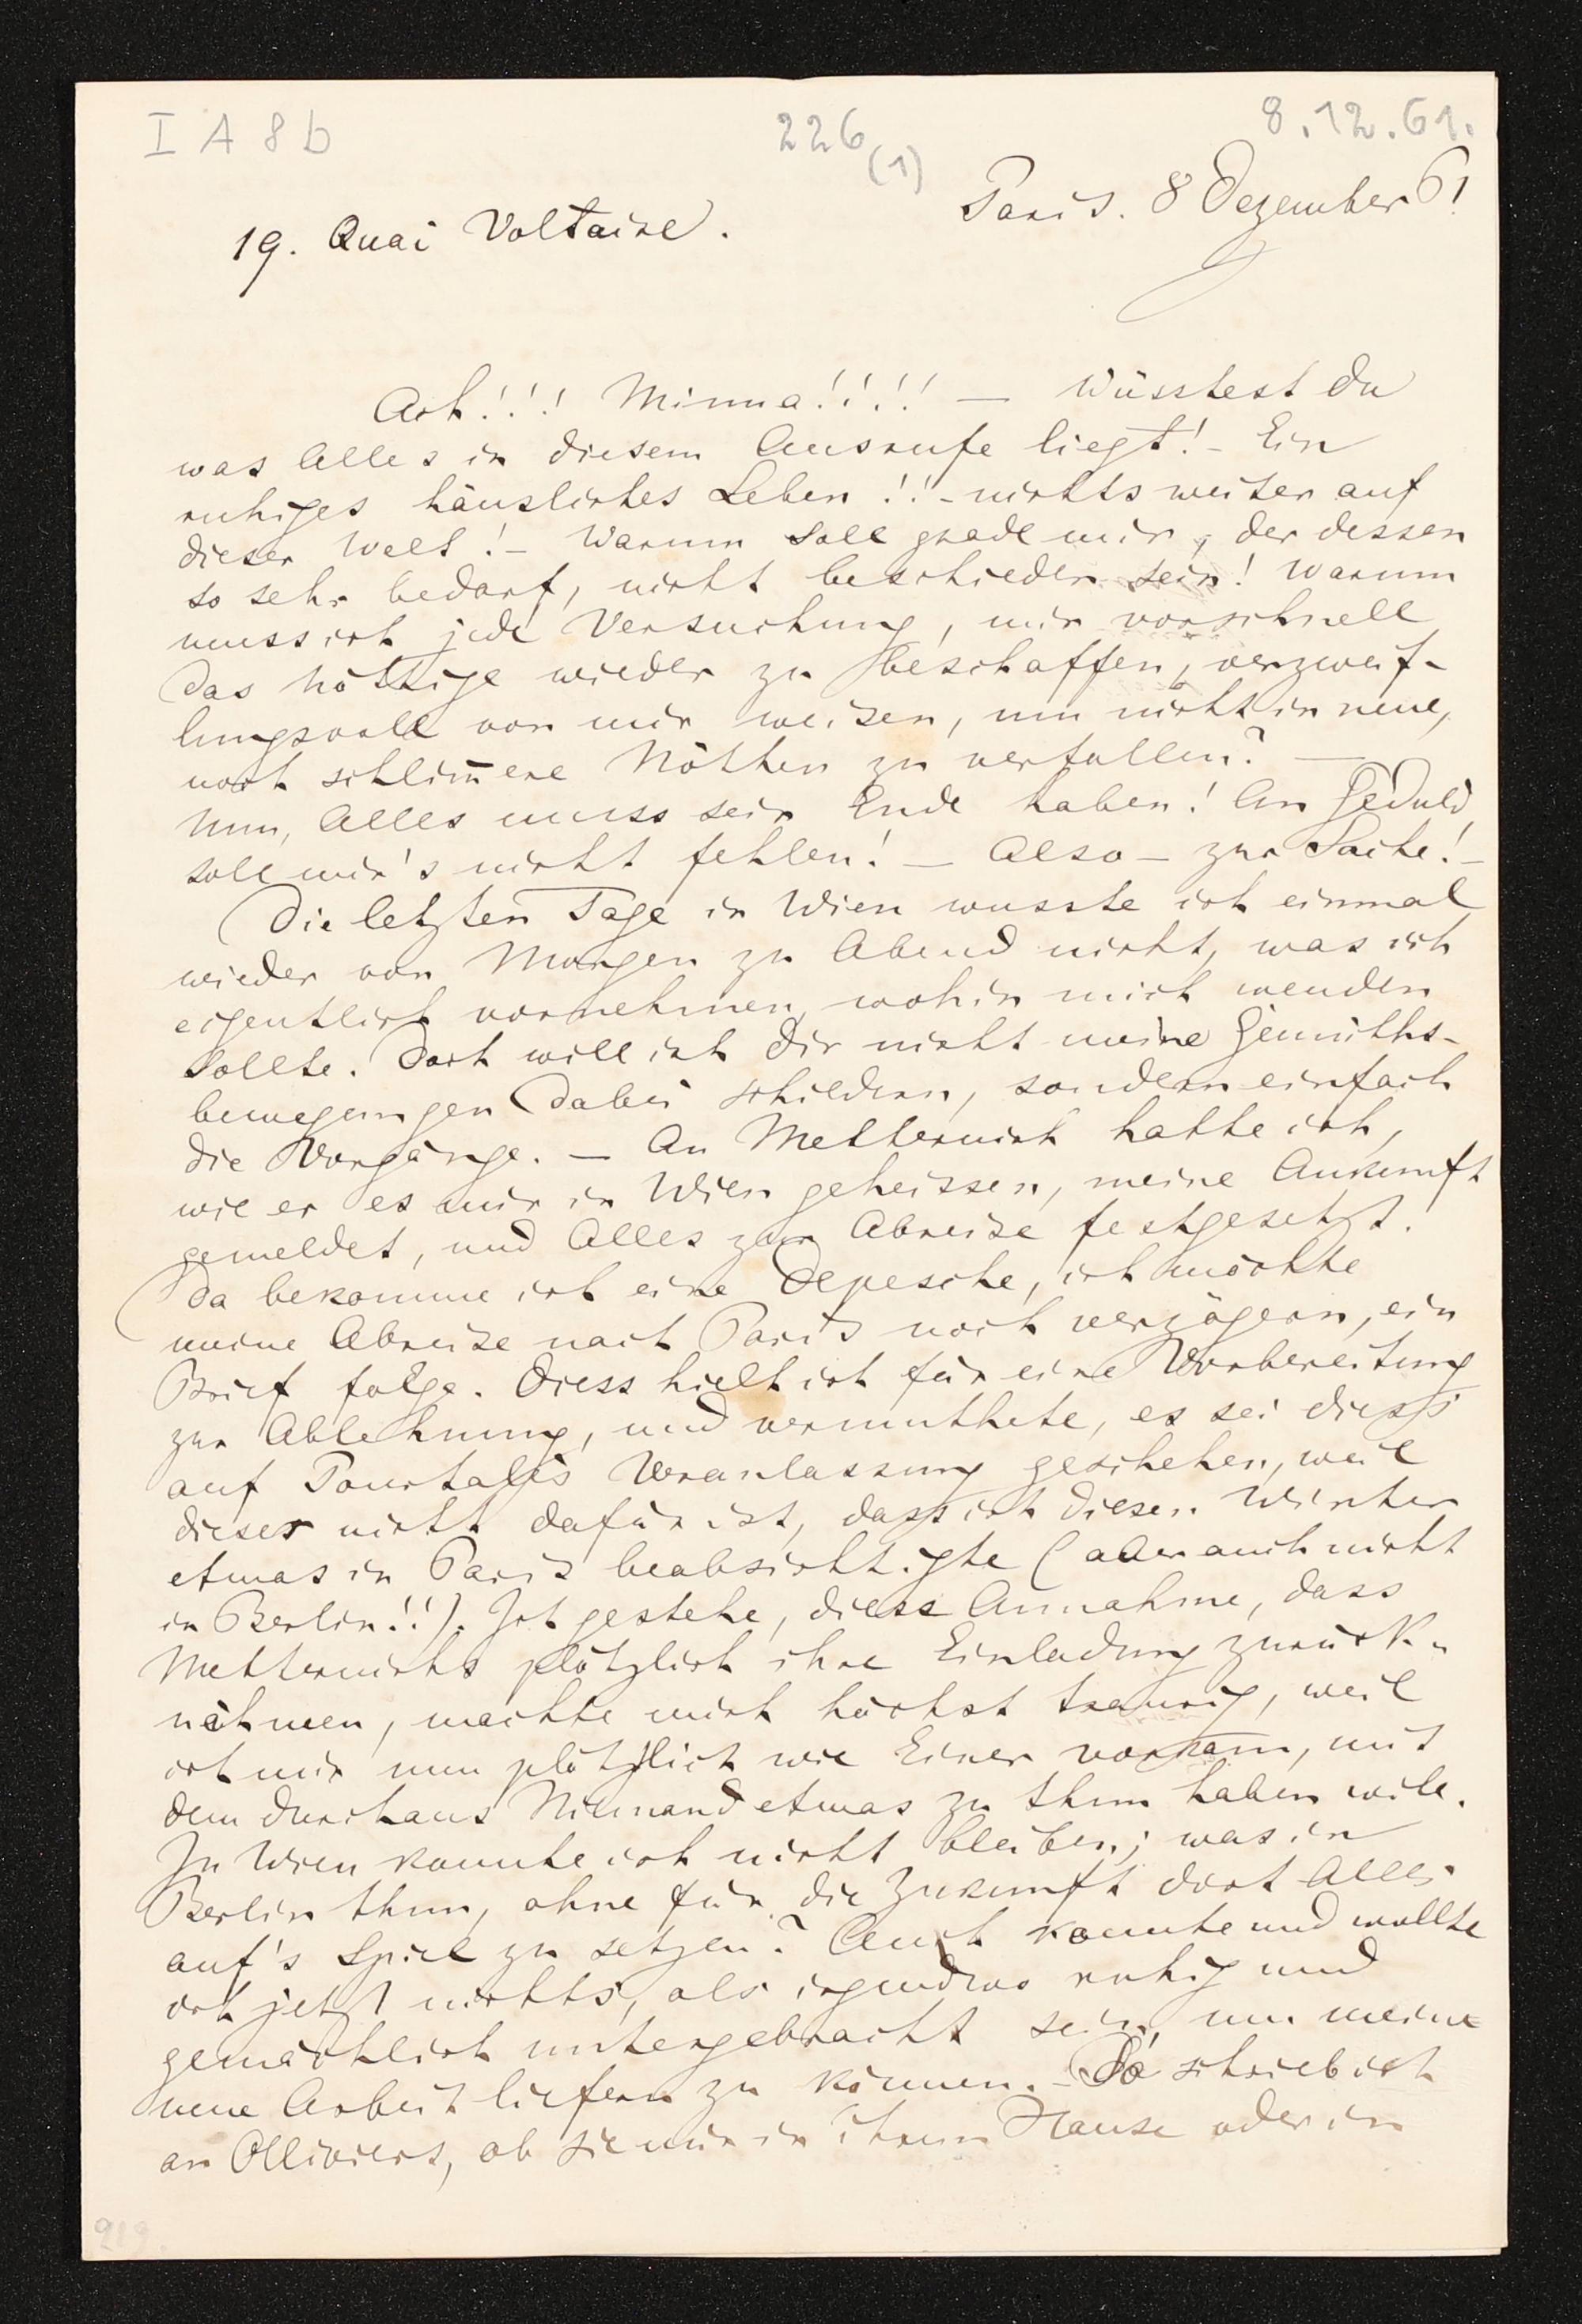 I A 8 b
226 (1)
8.12.61.
Paris. 8 Dezember 61
19. Quai Voltaire.
Ach!!! Minna!!!! — Wüsstest du
was Alles in diesem Ausrufe liegt! - Ein
ruhiges häusliches Leben!! - nichts weiter auf
dieser Welt! - Warum soll grade mir, der dessen
so sehr bedarf, nicht beschieden sein! Warum
muss ich jede Versuchung, mir vorschnell
das Nöthige wieder zu beschaffen, verzweif-
lungsvoll von mir weisen, um nicht in neue,
noch schlim̅ere Nöthen zu verfallen? —
Nun, Alles muss sein Ende haben! An Geduld
soll mir's nicht fehlen! — Also — zur Sache! -
Die letzten Tage in Wien wusste ich einmal
wieder von Morgen zu Abend nicht, was ich
eigentlich vornehmen, wohin mich wenden
sollte. Doch will ich dir nicht meine Gemüths-
bewegungen dabei schildern, sondern einfach
die Vorgänge. — An Metternich hatte ich,
wie er es mir in Wien geheissen, meine Ankunft
gemeldet, und Alles zur Abreise festgesetzt!
Da bekomme ich eine Depesche, ich möchte
meine Abreise nach Paris noch verzögern, ein
Brief folge. Diess hielt ich für eine Vorbereitung
zur Ablehnung, und vermuthete, es sei diess
auf Pourtalès Veranlassung geschehen, weil
dieser nicht dafür ist, dass ich diesen Winter
etwas in Paris beabsichtigte (aber auch nicht
in Berlin!!). Ich gestehe, diese Annahme, dass
Metternichs plötzlich ihre Einladung zurück-
nähmen, machte mich höchst traurig, weil
ich mir nun plötzlich wie Einer vorkam, mit
dem durchaus Niemand etwas zu thun haben will.
In Wien konnte ich nicht bleiben; was in
Berlin thun, ohne für die Zukunft dort Alles
auf's Spiel zu setzen? Auch konnte und wollte
ich jetzt nichts, als irgendwo ruhig und
gemächlich untergebracht sein, um meine
neue Arbeit liefern zu können. - So schrieb ich
an Olliviers, ob sie mir in ihrem Hause oder in